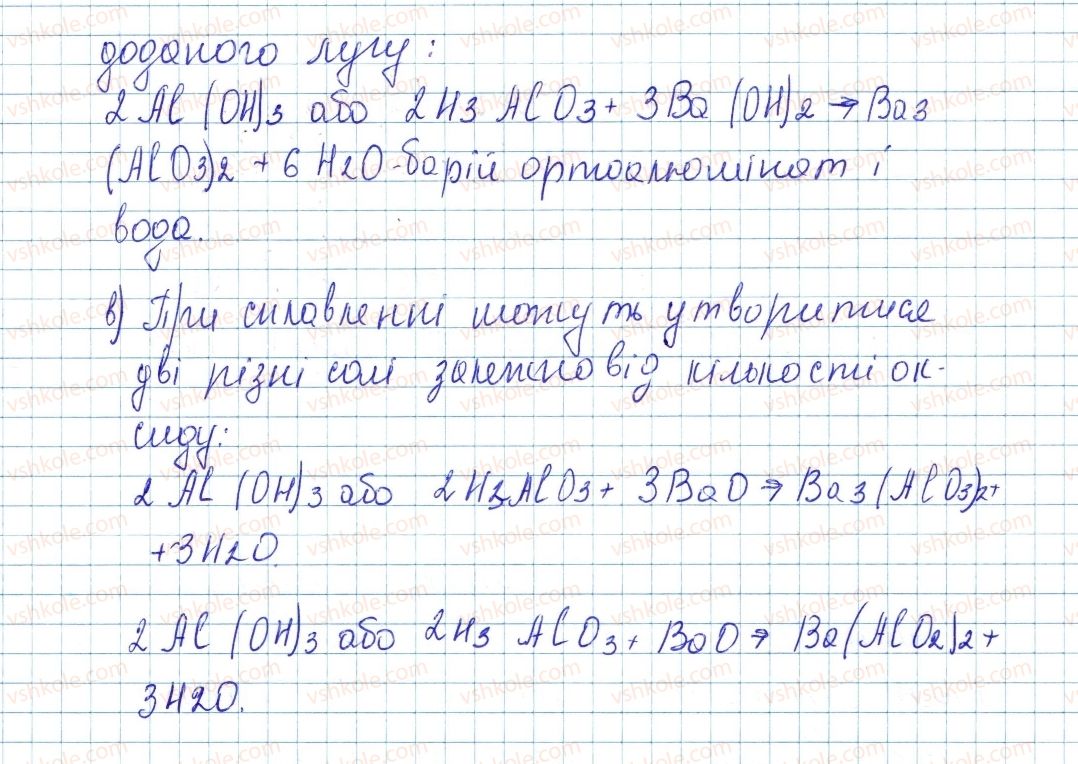 доданого лугу:
2 Al (OH)3 або 2 H3 AlO3 + 3 Ba (OH)2 → Ba3
(AlO3)2 + 6 H2O - барій ортоалюмінат і
вода.
в) При сплавленні можуть утворитися
дві різні солі залежно від кількості ок-
сиду:
2 Al (OH)3 або 2 H3AlO3 + 3 BaO → Ba3 (AlO3)2 +
+ 3 H2O.
2 Al (OH)3 або 2 H3 AlO3 + BaO → Ba (AlO2)2 +
3 H2O.